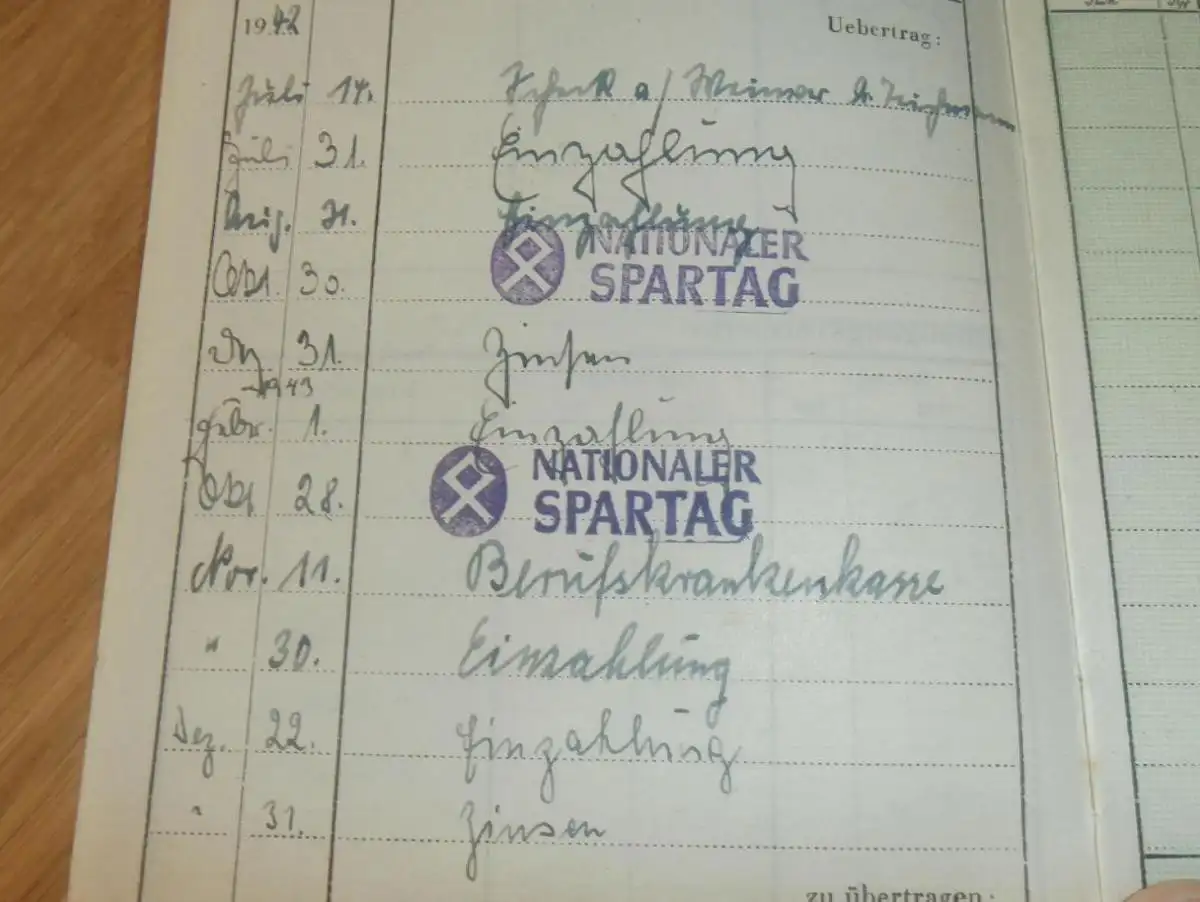 1942 Uebertrag:
Juli 14. Scheck a/ Weimar
Juli 31. Einzahlung
Aug. 31. Einzahlung
Okt. 30. NATIONALER SPARTAG
Dez 31. Zinsen
1943
Febr. 1. Einzahlung
Okt 28. NATIONALER SPARTAG
Nov. 11. Berufskrankenkasse
" 30. Einzahlung
Dez. 22. Einzahlung
" 31. Zinsen
zu übertragen: